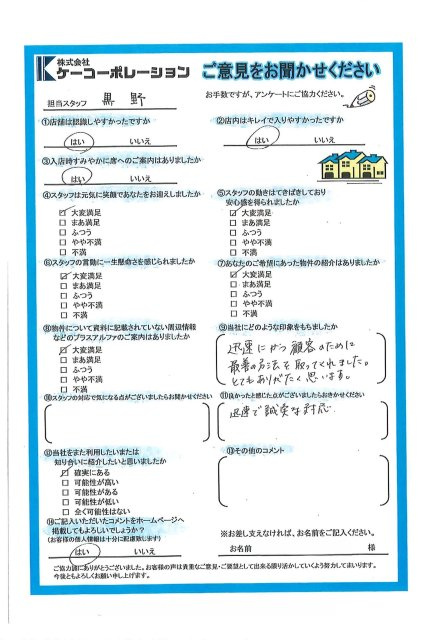 株式会社
ケーコーポレーション
ご意見をお聞かせください
担当スタッフ 黒野
お手数ですが、アンケートにご協力ください。
①店舗は認識しやすかったですか
はい いいえ
②店内はキレイで入りやすかったですか
はい いいえ
③入店時すみやかに席へのご案内はありましたか
はい いいえ
④スタッフは元気に笑顔であなたをお迎えしましたか
大変満足
まあ満足
ふつう
やや不満
不満
⑤スタッフの動きはてきぱきしており
安心感を得られましたか
大変満足
まあ満足
ふつう
やや不満
不満
⑥スタッフの言動に一生懸命さを感じられましたか
大変満足
まあ満足
ふつう
やや不満
不満
⑦あなたのご希望にあった物件の紹介はありましたか
大変満足
まあ満足
ふつう
やや不満
不満
⑧物件について資料に記載されていない周辺情報
などのプラスアルファのご案内はありましたか
大変満足
まあ満足
ふつう
やや不満
不満
⑨当社にどのような印象をもちましたか
迅速にかつ顧客のために
最善の方法を取ってくれました。
とてもありがたく思います。
⑩スタッフの対応で気になる点がございましたらお聞かせください
⑪良かったと感じた点がございましたらおきかせください
迅速で誠実な対応
⑫当社をまた利用したいまたは
知り合いに紹介したいと思いましたか
確実にある
可能性が高い
可能性がある
可能性が低い
全く可能性はない
⑬その他のコメント
⑭ご記入いただいたコメントをホームページへ
掲載してもよろしいでしょうか？
(お客様の個人情報は十分に配慮致します)
はい いいえ
※お差し支えなければ、お名前をご記入ください。
お名前 様
ご協力誠にありがとうございました。お客様の声は貴重なご意見・ご要望として出来る限り活かしていくよう努力してまいります。
今後ともよろしくお願い申し上げます。